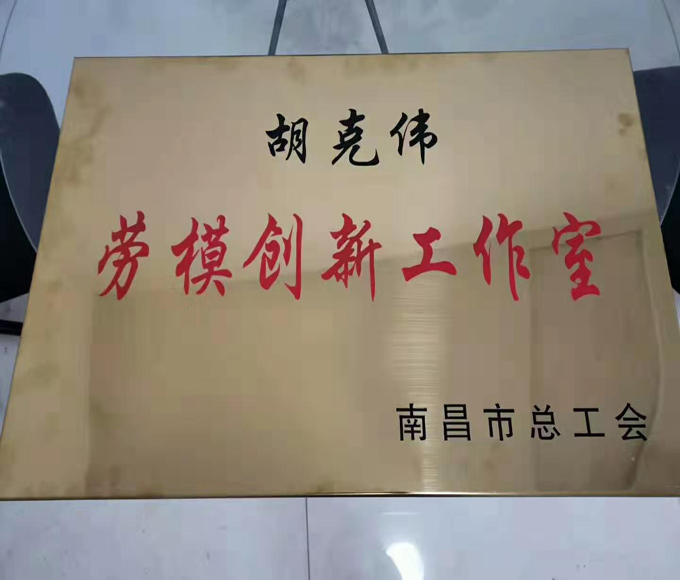 胡克伟
劳模创新工作室
南昌市总工会